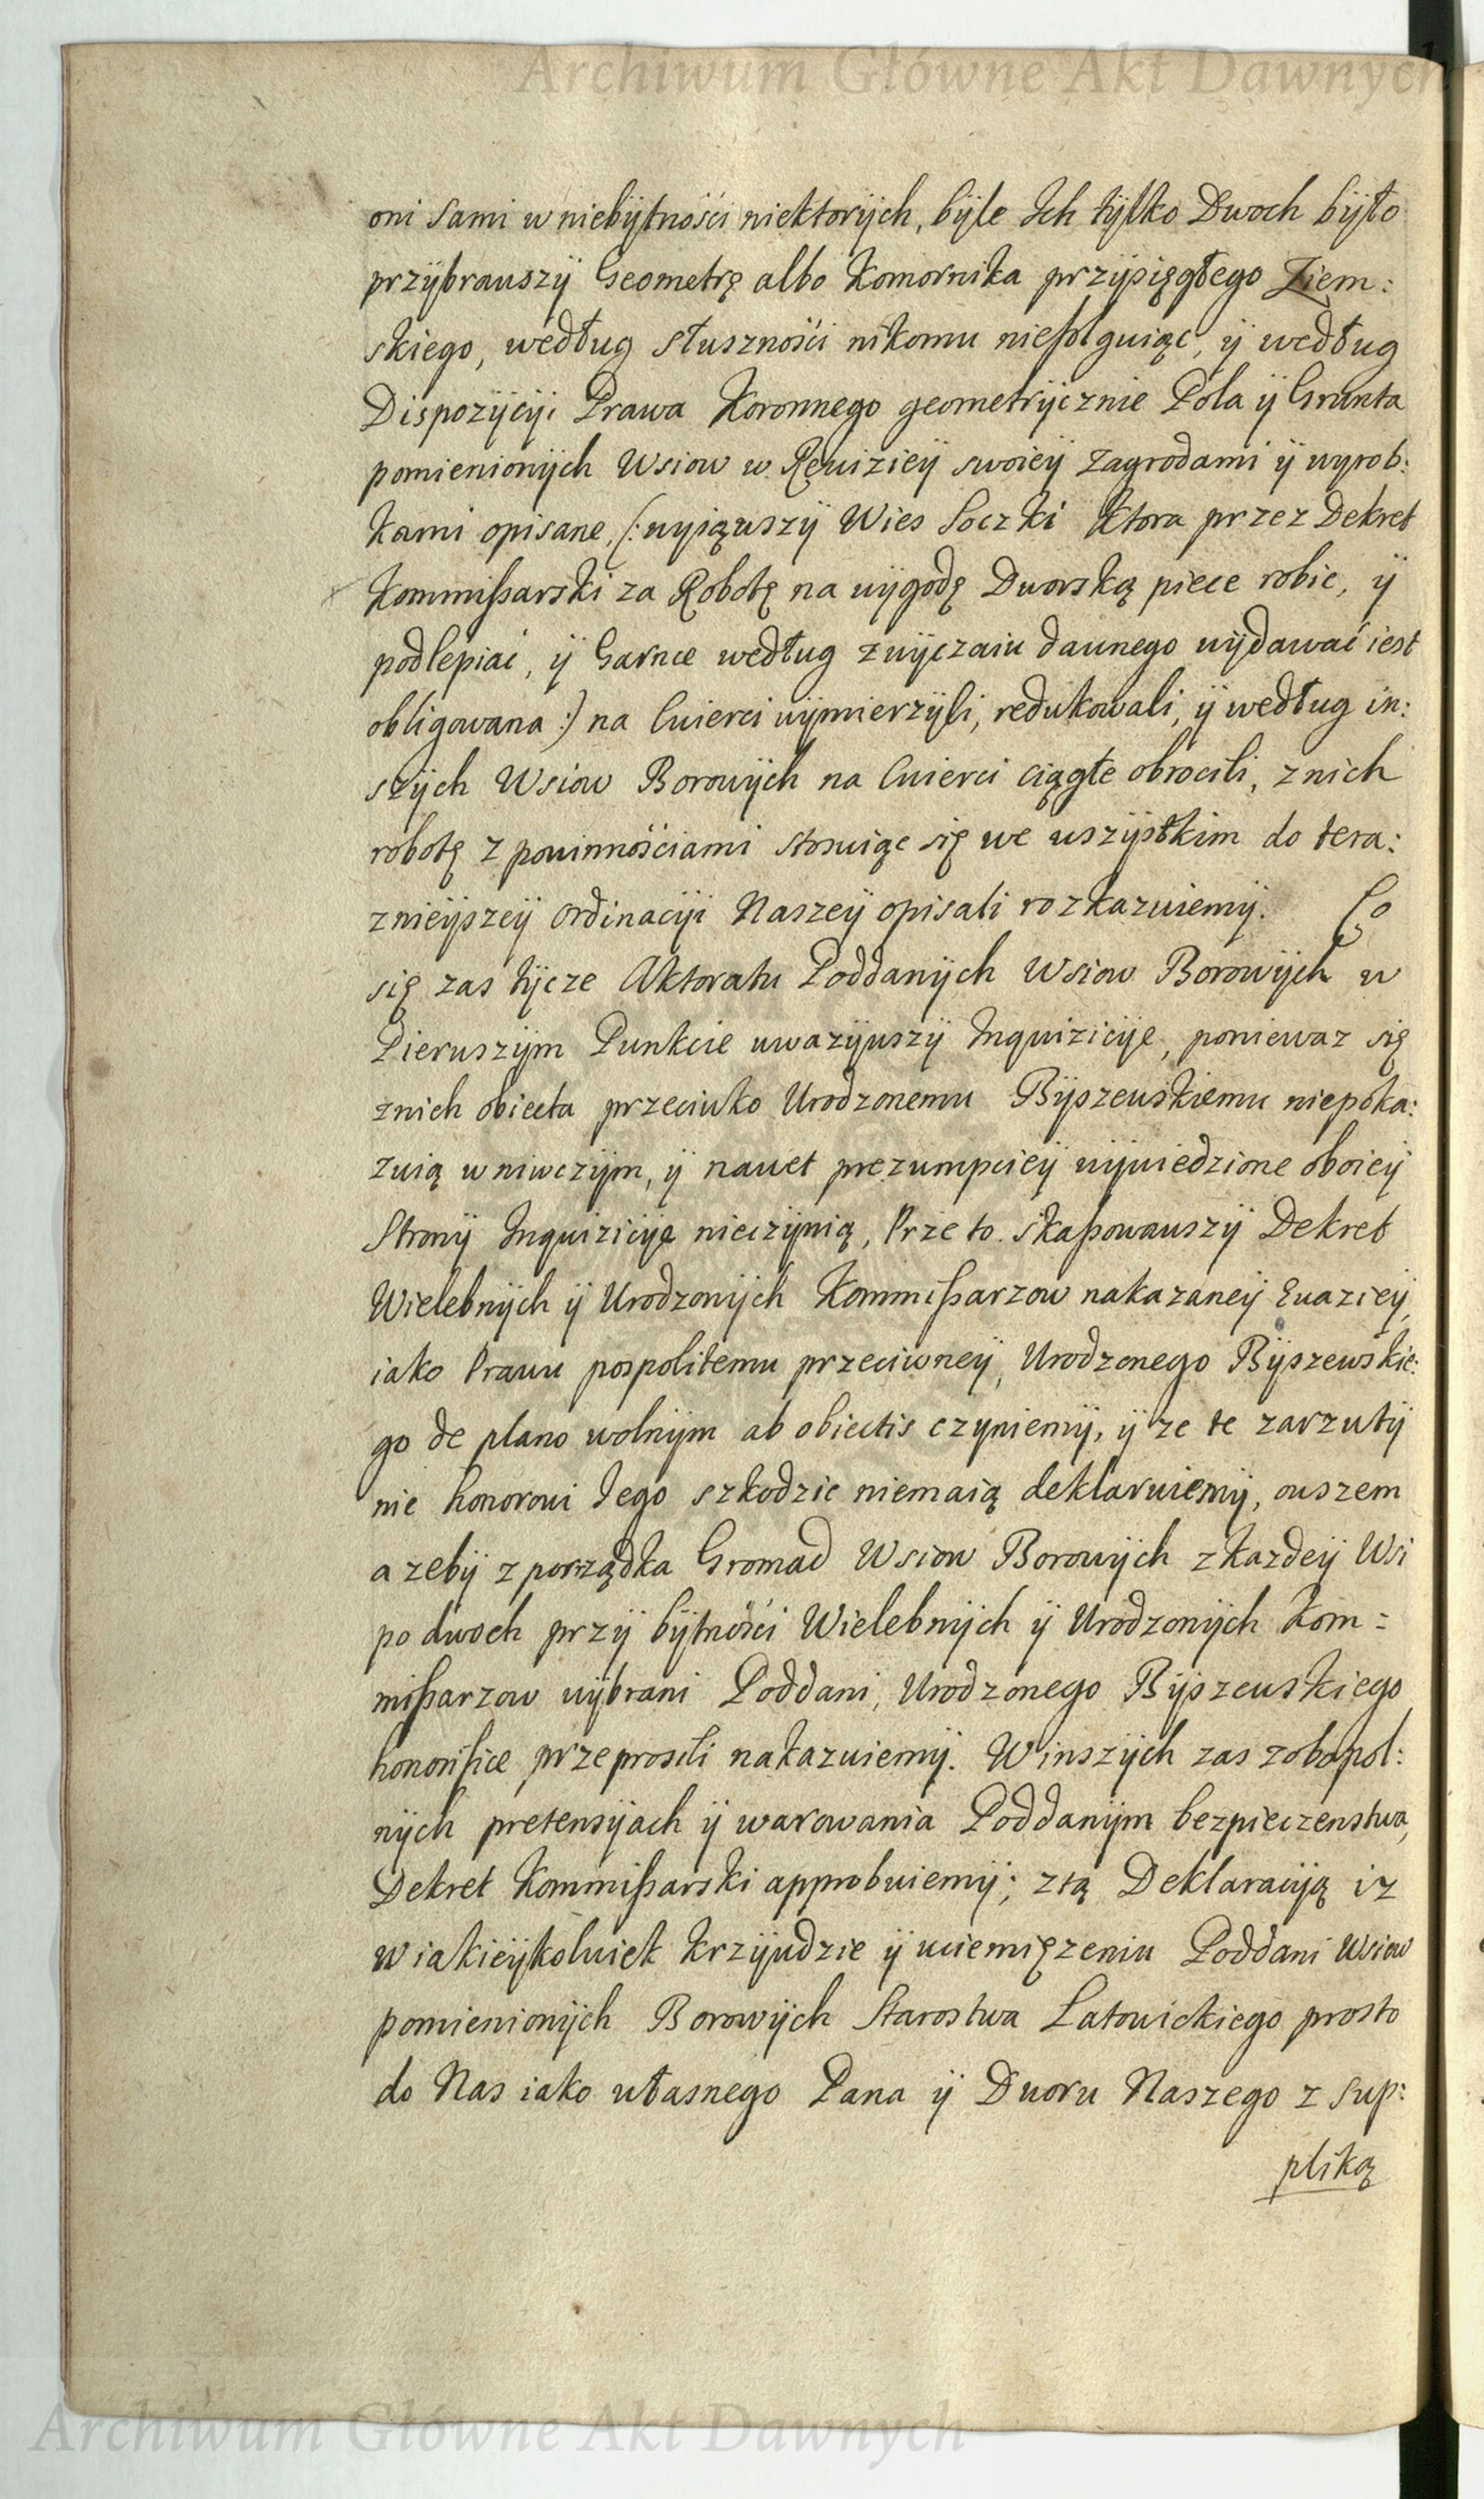 Archiwum Główne Akt Dawnych
oni sami w niebÿtności niektorÿch, bÿle Ich tÿlko Dwoch bÿło
przÿbrawszÿ Geometrę albo Komornika przÿsięgłego Ziem:
skiego, według słuszności nikomu niefolguiąc, ÿ według
Dispozÿcÿi Prawa Koronnego geometrÿcznie Pola ÿ Grunta
pomienionÿch Wsiow w Rewizieÿ swoieÿ Zagrodami ÿ wyrob:
kami opisane, (: wyiąwszÿ Wies Soczki Ktora przez Dekret
Kommissarski za Robotę na wÿgodę Dworską piece robic, ÿ
podlepiać, ÿ Garnce według zwÿczaiu dawnego wÿdawać iest
obligowana :) na Cwierci wÿmierzÿli, redukowali, ÿ według in:
szÿch Wsiow Borowÿch na Cwierci ciągłe obrocili, znich
robotę z powinnościami stosuiąc się we wszÿstkim do tera:
znieÿszeÿ Ordinacÿi Naszeÿ opisali rozkazuiemÿ. Co
się zas tÿcze Aktoratu Poddanÿch Wsiow Borowÿch w
Pierwszÿm Punkcie uwazÿwszÿ Inquizicÿe, poniewaz się
znich obiecta przeciwko Urodzonemu Bÿszewskiemu niepoka:
zuią w niwczÿm, ÿ nawet prezumpcieÿ wÿwiedzione oboieÿ
Stronÿ Inquizicÿe nieczÿnią, Przeto skassowawszÿ Dekret
Wielebnÿch ÿ Urodzonÿch Kommissarzow nakazaneÿ Ewazieÿ,
iako Prawu pospolitemu przeciwneÿ, Urodzonego Bÿszewskie:
go de plano wolnÿm ab obiectis czyniemÿ, ÿ ze te zarzutÿ
nic honorowi Jego szkodzic niemaią deklaruiemÿ, owszem
azebÿ z porządka Gromad Wsiow Borowÿch z kazdeÿ Wsi
po dwoch przÿ bÿtności Wielebnÿch ÿ Urodzonÿch Kom=
missarzow wÿbrani Poddani, Urodzonego Bÿszewskiego
honorifice przeprosili nakazuiemÿ. W inszÿch zas zobopol:
nÿch pretensÿach ÿ warowania Poddanÿm bezpieczenstwa,
Dekret Kommissarski approbuiemÿ; ztą Deklaracÿą iz
w iakieÿkolwiek krzÿwdzie ÿ uciemięzeniu Poddani Wsiow
pomienionÿch Borowÿch Starostwa Latowickiego prosto
do Nas iako własnego Pana ÿ Dworu Naszego z sup:
pliką
Archiwum Główne Akt Dawnych